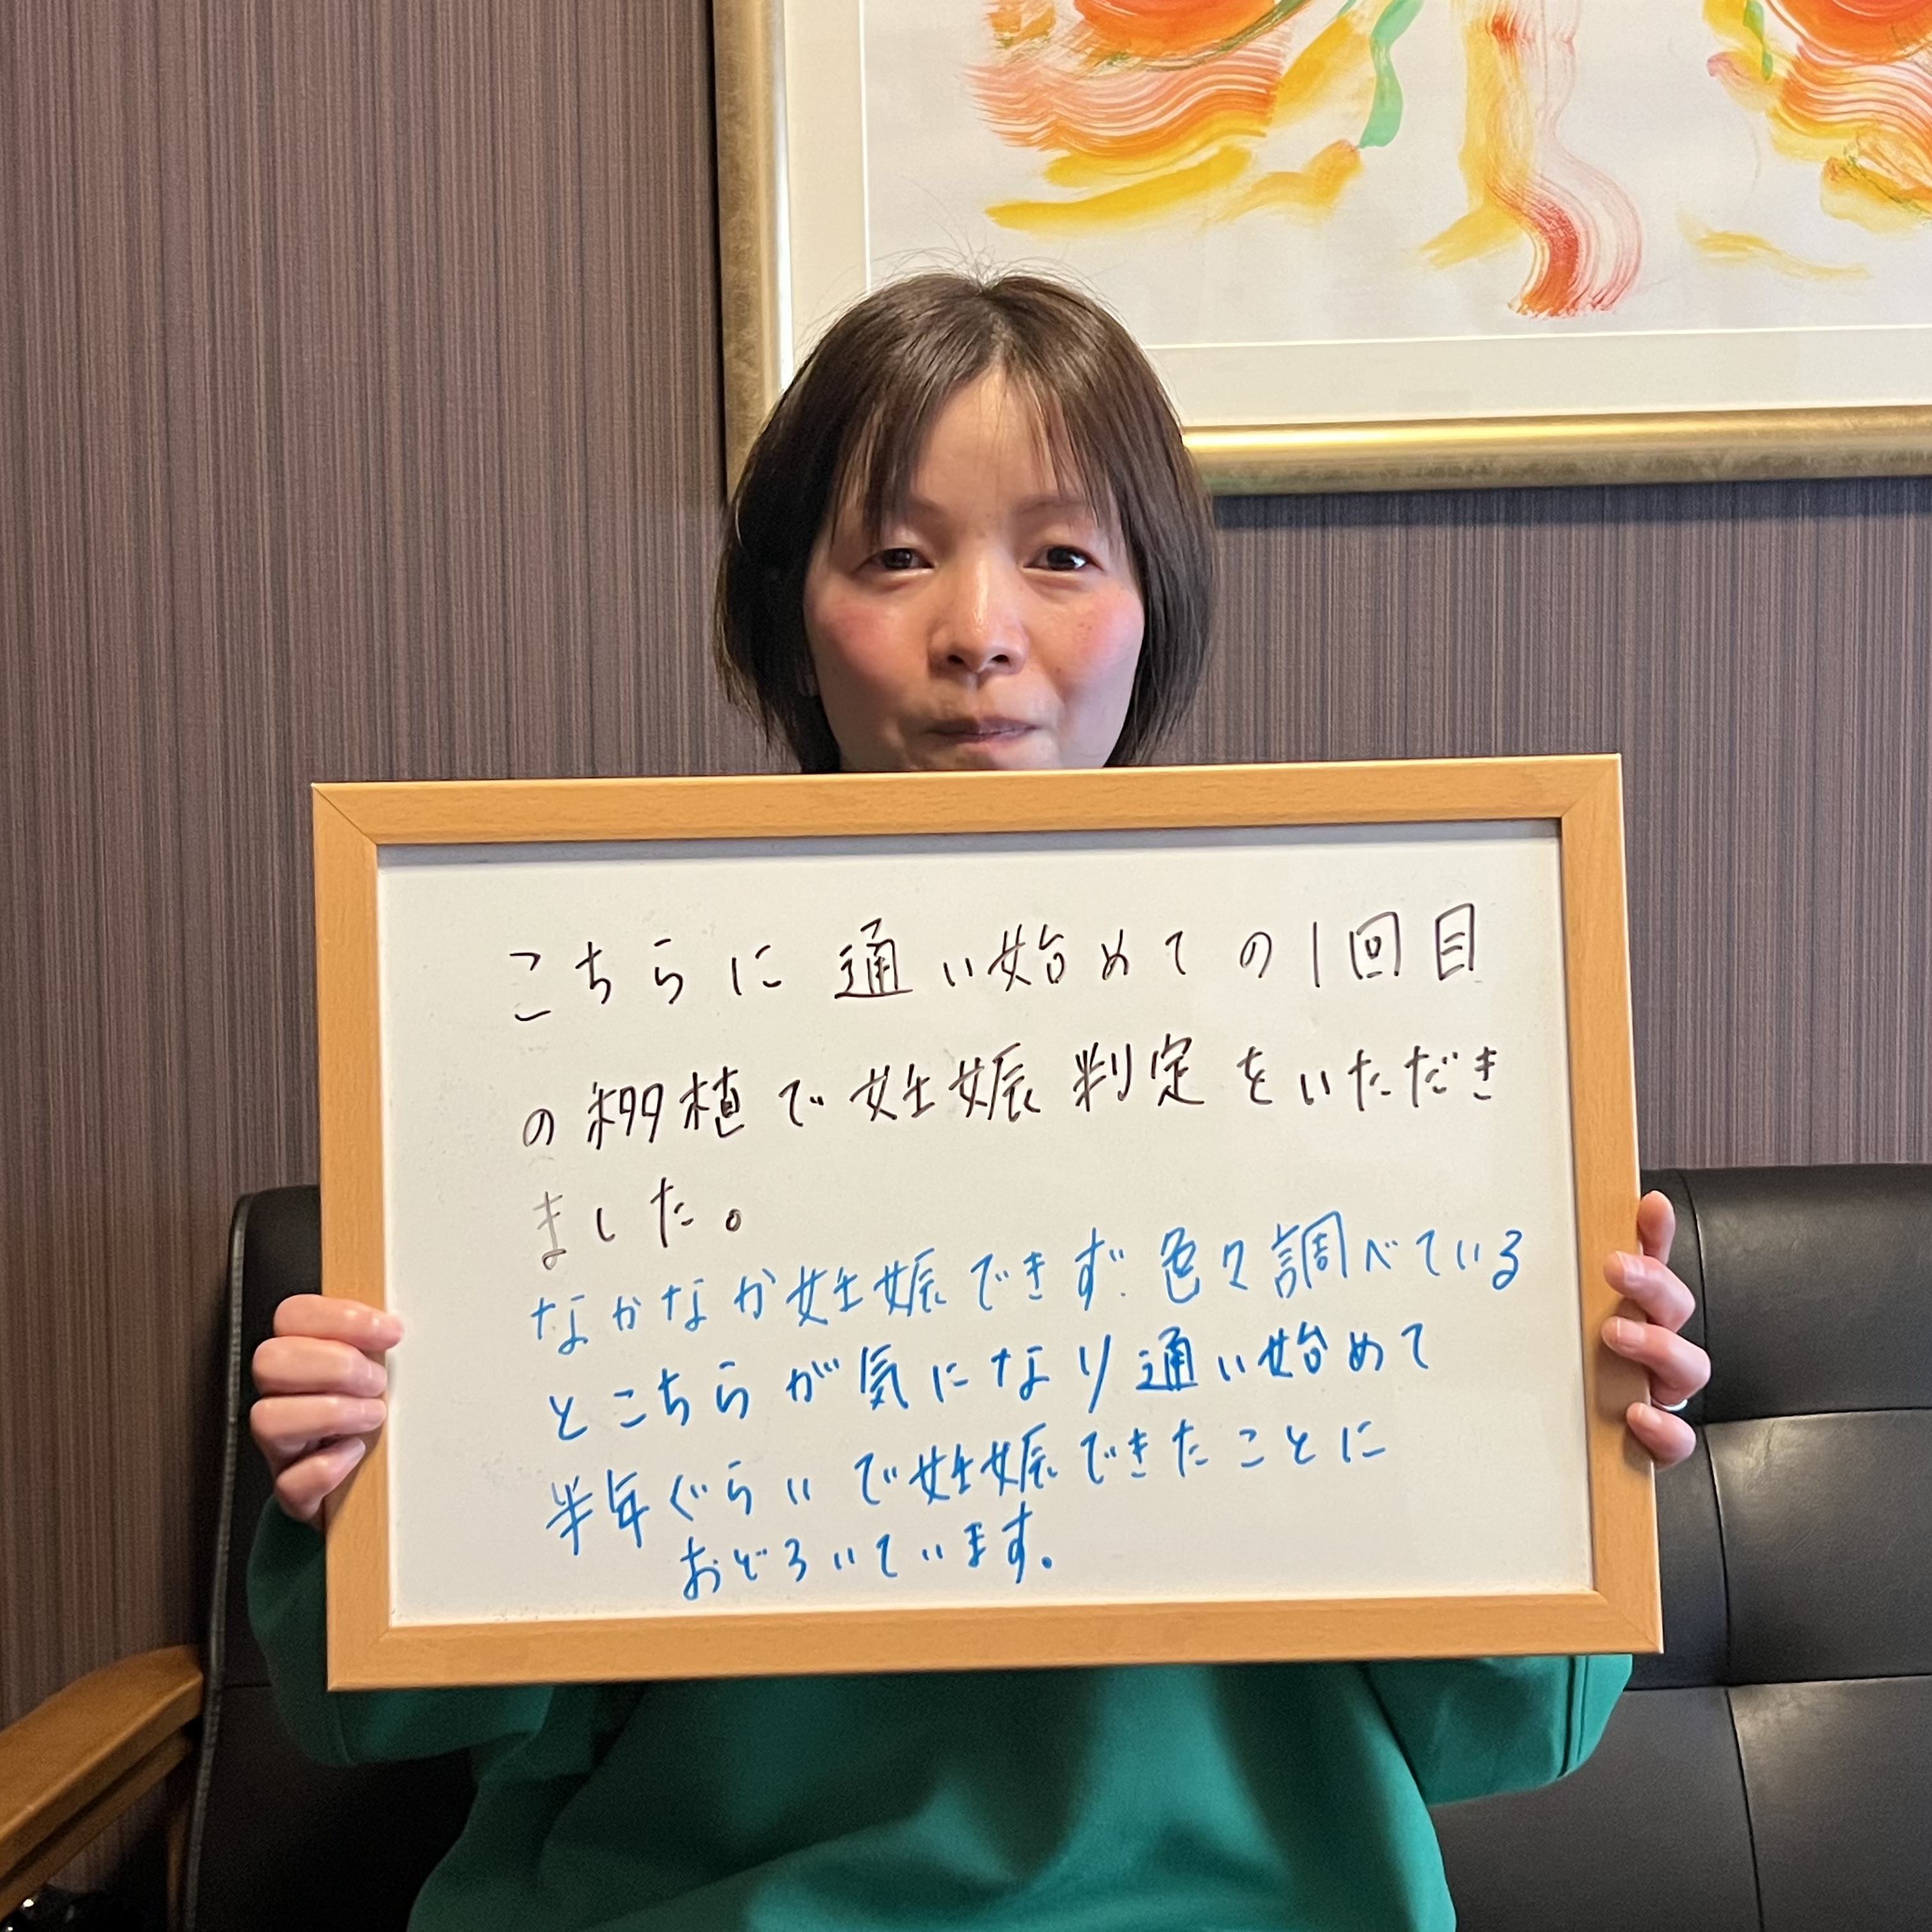 こちらに通い始めての1回目
の移植で妊娠判定をいただき
ました。
なかなか妊娠できず、色々調べている
とこちらが気になり通い始めて
半年ぐらいで妊娠できたことに
おどろいています。